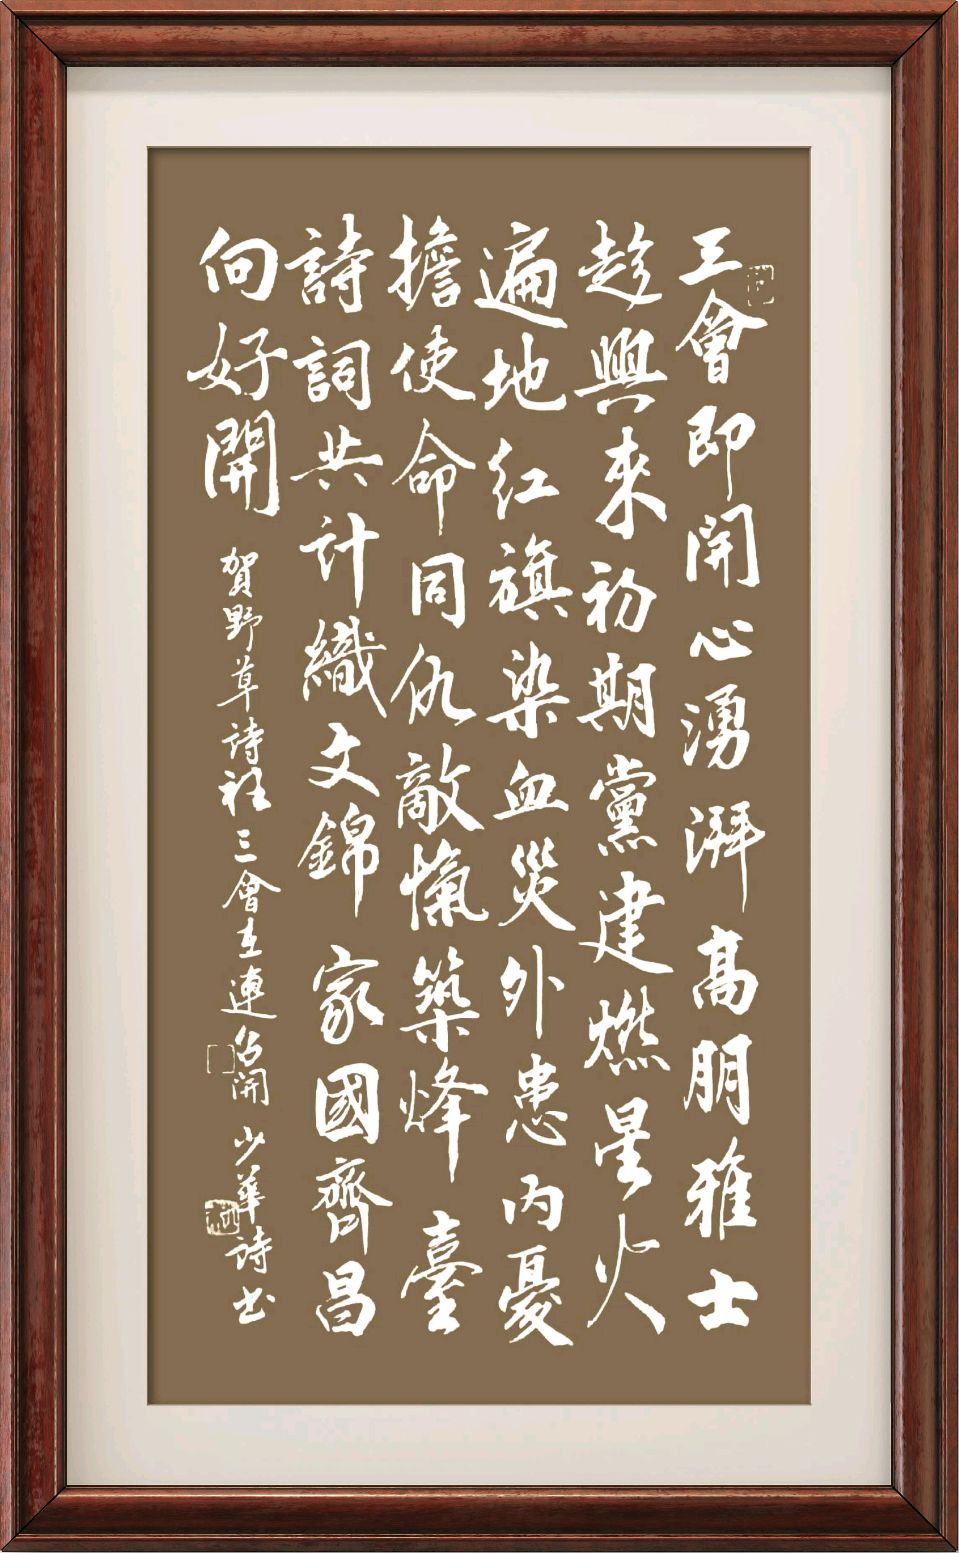 三會即開心湧湃高朋雅士
趁興來初期黨建燃星火
遍地红旗染血災外患内憂
擔使命同仇敵愾築烽臺
詩詞共计織文錦家國齊昌
向好開
賀野草詩社三會在連召開 少華詩书